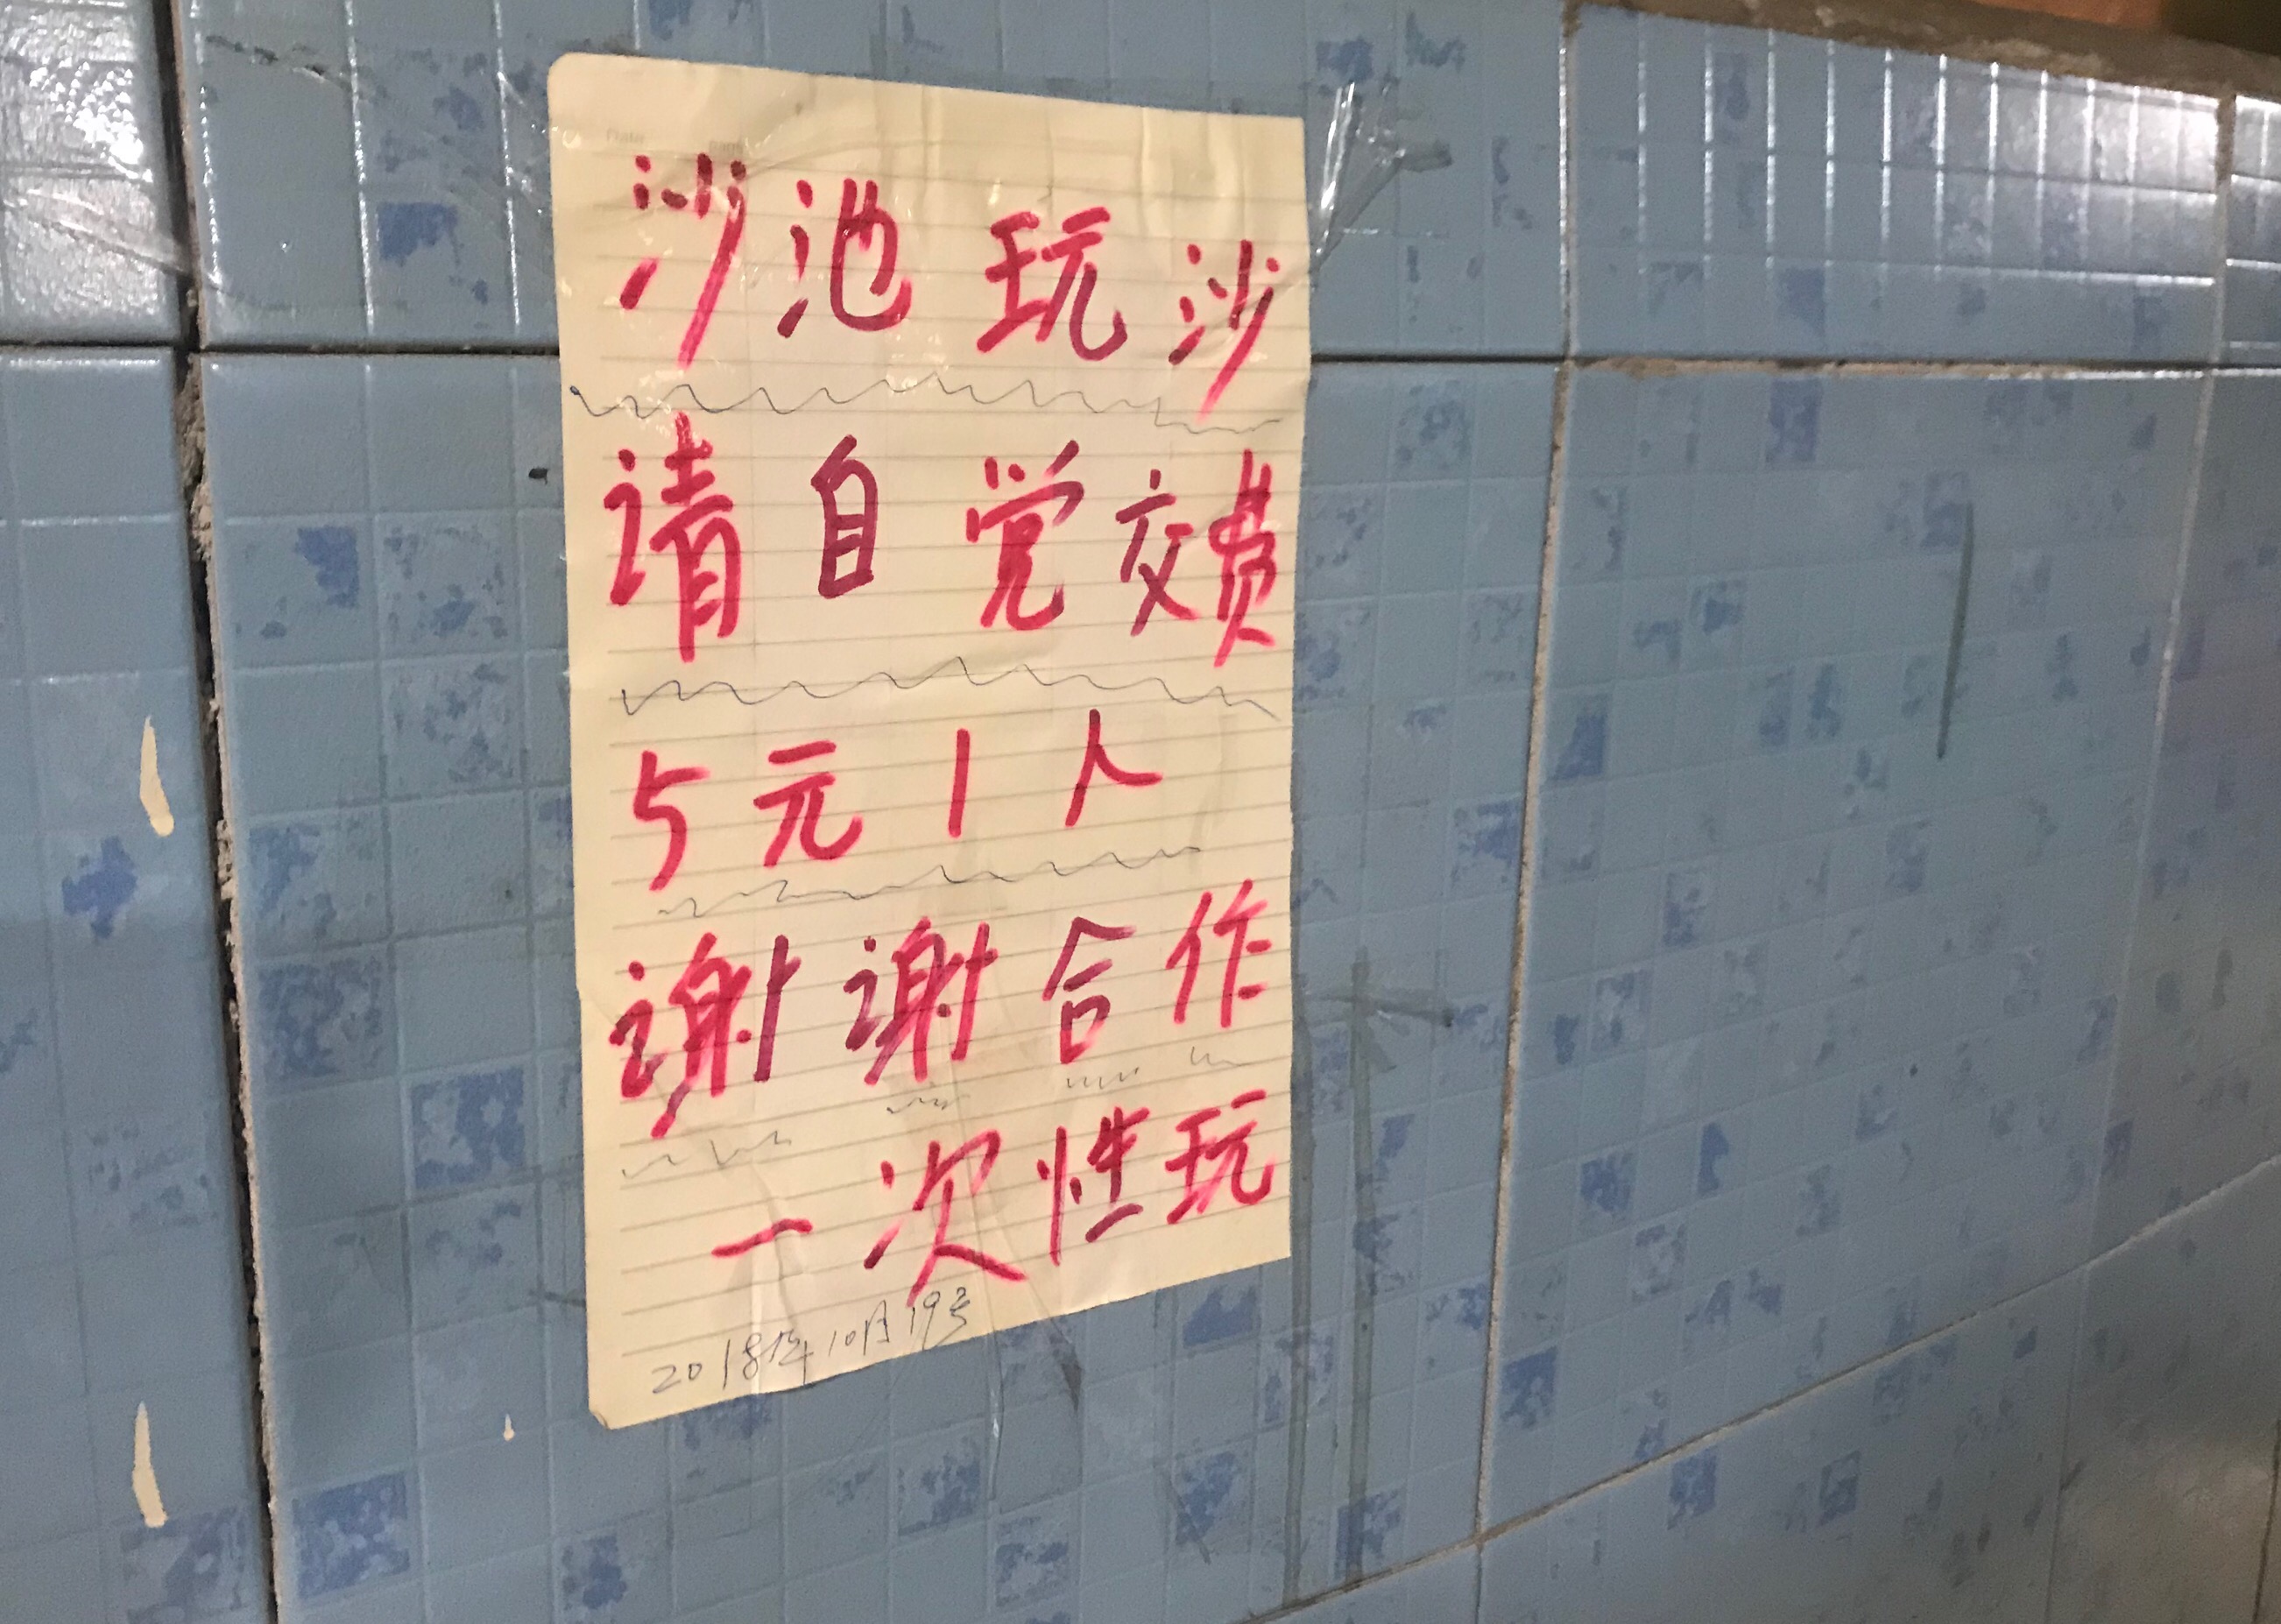 Date
沙池玩沙
请自觉交费
5元1人
谢谢合作
一次性玩
2018年10月19号